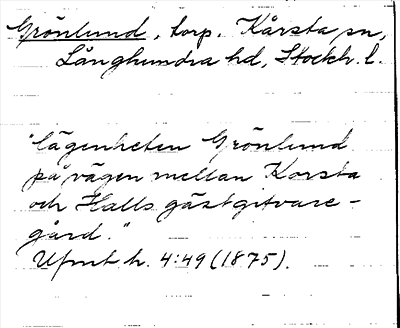 Grönlund, torp. Kårsta sn,
Långhundra hd, Stockh. l.
"lägenheten Grönlund
på vägen mellan Korsta
och Halls gästgifvare-
gård."
Upmt h. 4:49 (1875).